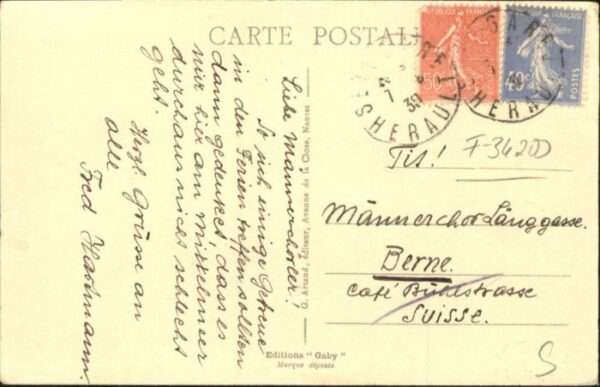 CARTE POSTALE
Liebe Männerchörler!
So sich einige Getreue
in den Ferien treffen sollten
dann gedenket, dass es
mir hier am Mittelmeer
durchaus nicht schlecht
geht.
Herzl. Grüsse an
alle
Fred Hartmann.
G. Artaud, Éditeur, Avenue de la Close, Nantes
Editions "Gaby"
Marque déposée
POSTES
GARE
HERAULT
F-34200
Tit!
Männerchor Länggasse.
Berne.
Café Bühlstrasse
Suisse.
S